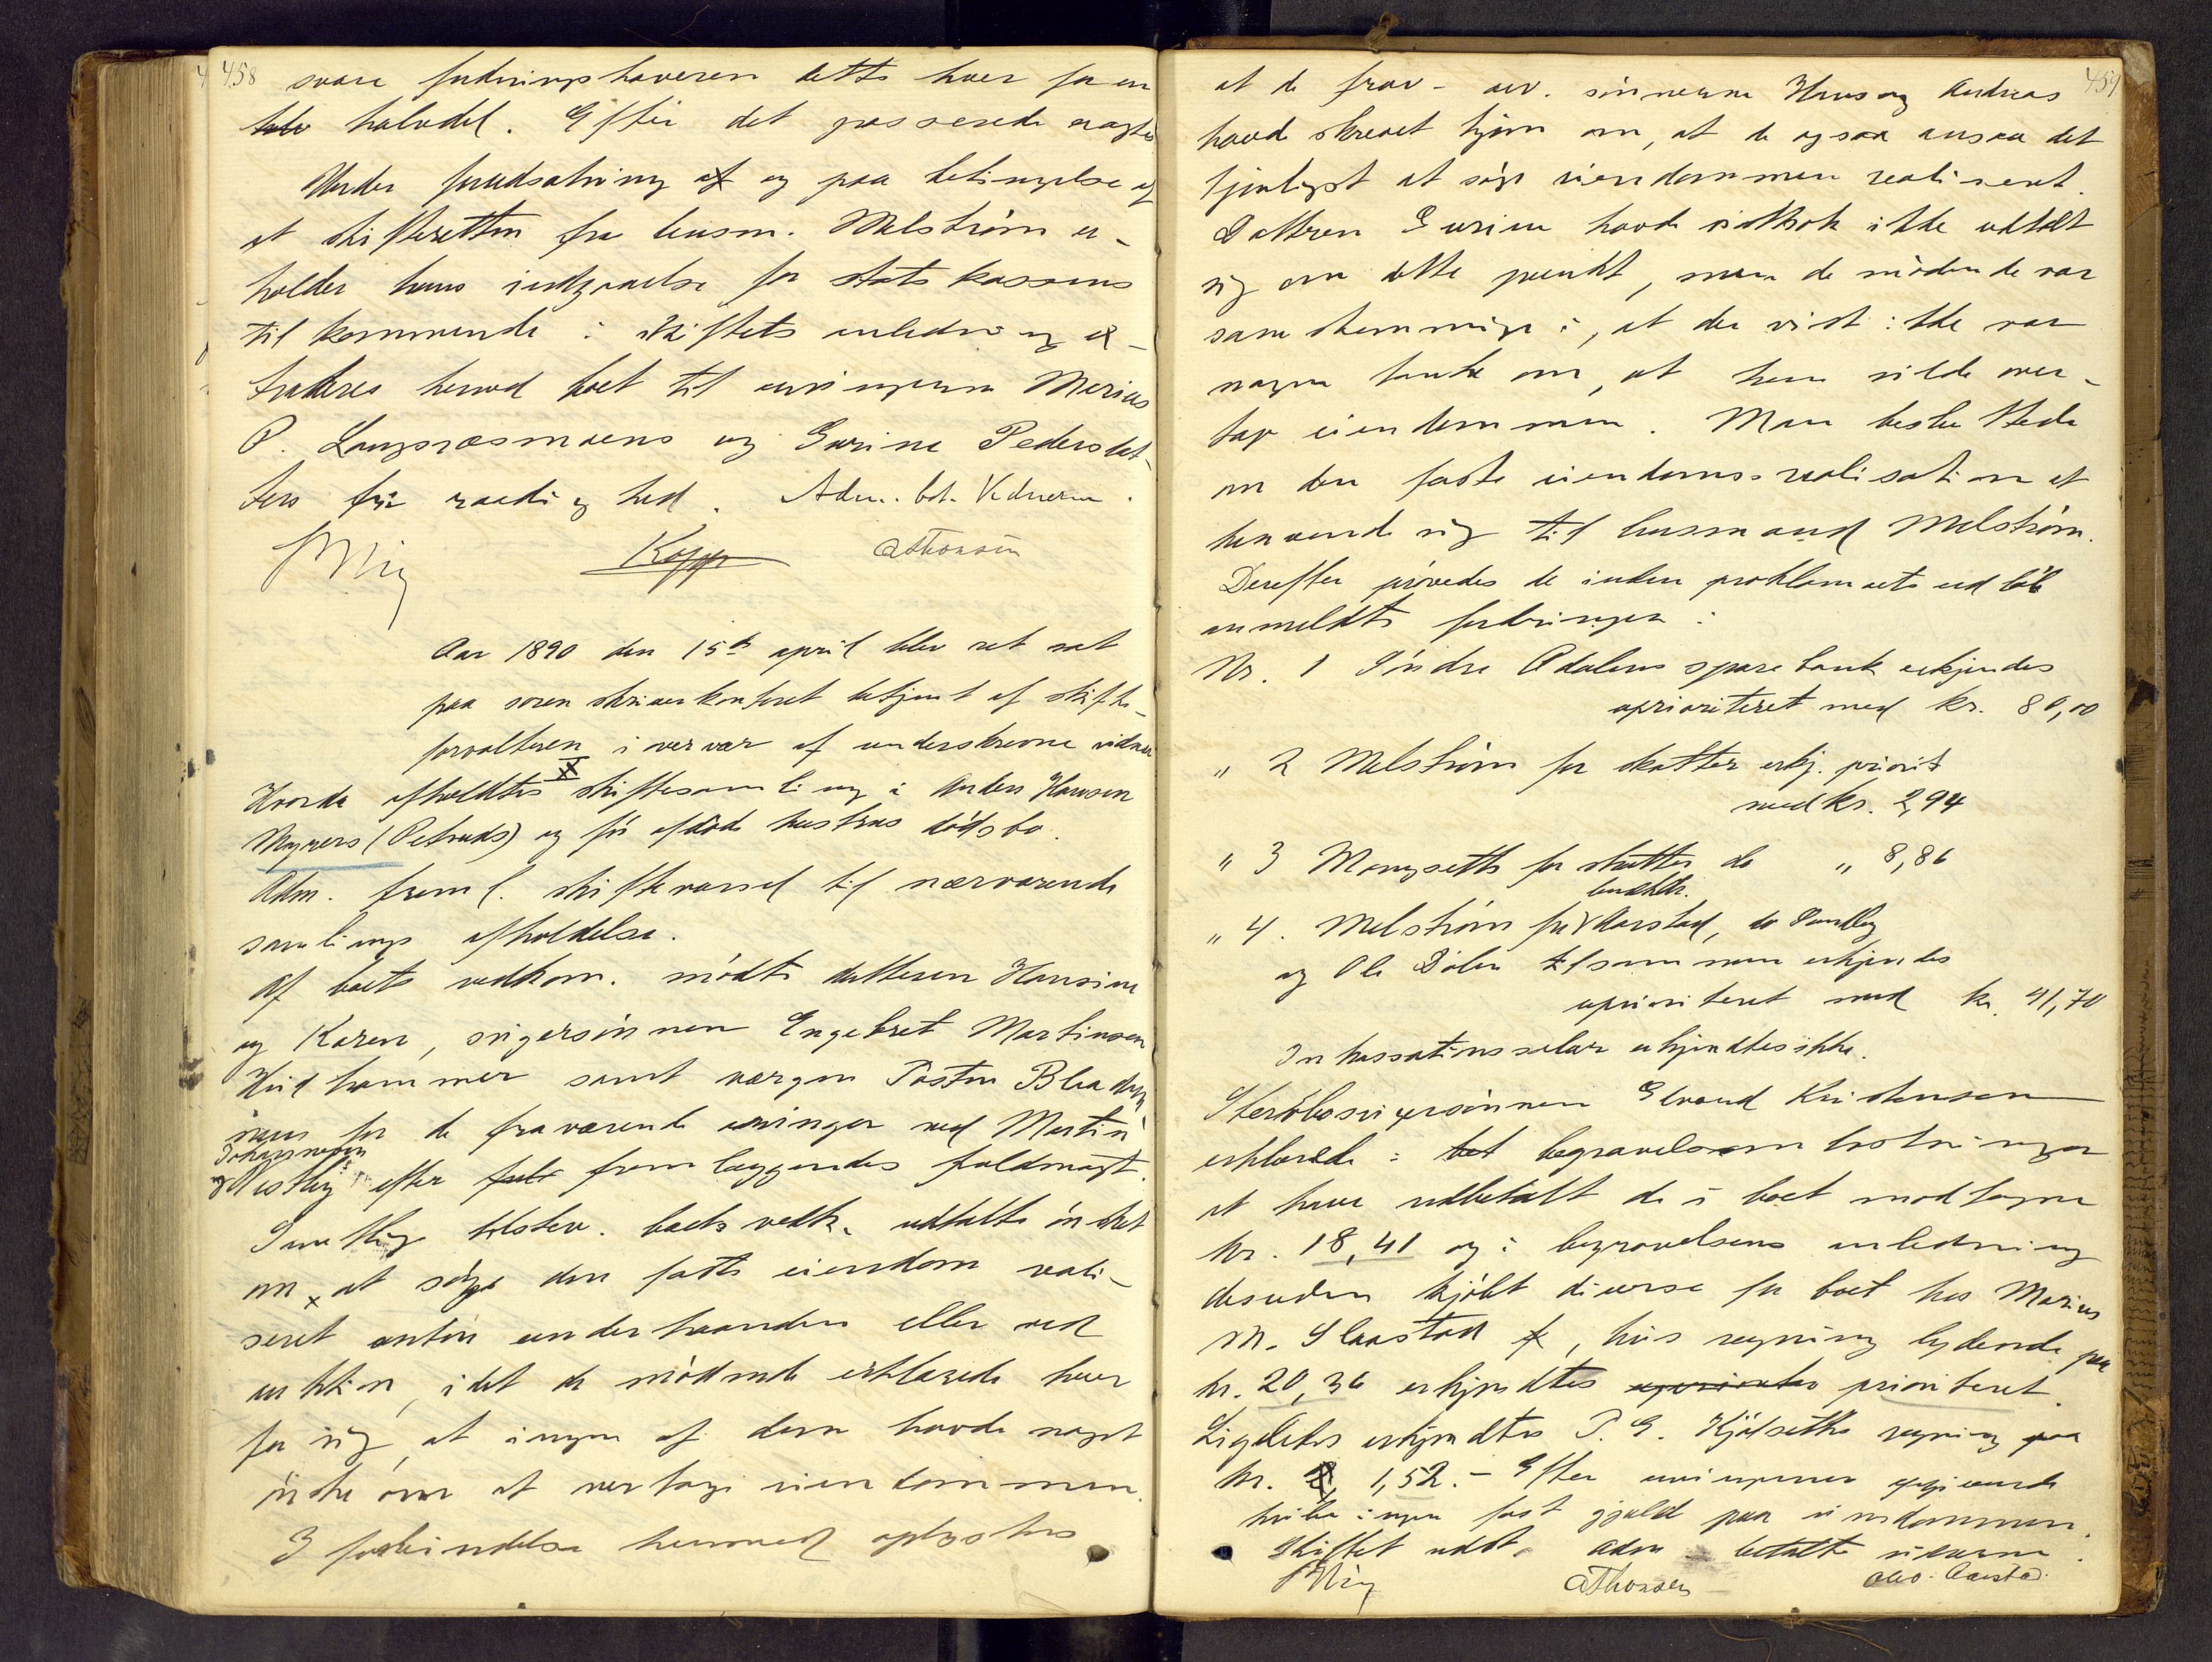 458
svare fordringshaveren dette hver for en
halvdel. Efter det passerede
Under forudsætning af og paa betingelse af
at skifteretten fra lensm. Melström er-
holder hans indgaaelse for statskassens
tilkommende i skiftets anledning ex-
traderes herved boet til arvingerne Marius
P. Langræsmoens og Gurine Pedersdat-
ters frie raadighed. Adm. bet. Vidnerne.
Kopp AThonsen
Aar 1890 den 15de april blev ret sat
paa sorenskriverkontoret betjent af skifte-
forvalteren i overvær af underskrevne vidner
Hvorda afholdtes skiftesamling i Anders Hansen
Myrers (Petruds) og før afdøde hustrus dødsbo.
Adm. freml. skiftevarsel til nærværende
samlings afholdelse.
Af boets vedkom. mødte døttrene Hansine
og Karen, svigersønnen Engebret Martinsen
Hvidhammer samt værgen Posten
for de fraværende arvinger ved Martin
Johannesen
efter fremlæggendes fuldmagt.
Samtlig tilstev. boets vedk. udtalte ønsket
om at søge den faste eiendom reali-
seret enten underhaanden eller ved
auktion, idet de mødende erklærede hver
for sig, at ingen af dem havde noget
ønske om at overtage eiendommen.
I forbindelse hermed oplystes
459
at de frav- ær. sønnerne Hans og Andreas
havde skrevet hjem om, at de ogsaa ansaa det
tjenligst at søge eiendommen realiseret.
Datteren Gurine havde vistnok ikke udtalt
sig om dette punkt, men de mødende var
samstemmige i, at der vist ikke var
nogen tanke om, at hun vilde over-
tage eiendommen. Man besluttede
om den faste eiendoms realisation at
henvende sig til lensmand Melström.
Derefter prøvedes de inden proklamaets udløb
anmeldte fordringer:
Nr. 1 Søndre Aadalens sparebank erkjendes
uprioriteret med kr. 80,00
" 2 Melström for skatter erkj. priorit
med kr. 2,94
" 3 Mangseth for skatter do " 8,86
" 4. Melström for Aarstad, do
og Ole Dølen tilsammen erkjendes
uprioriteret med kr. 41,70
Inkassationssalær erkjendtes ikke.
Sterbbosvigersønnen Elvend Kristensen
erklærede: begravelsesomkostninger
at have udbetalt de i boet modtagne
kr. 18,41 og i begravelsens anledning
desuden kjøbt diverse for boet hos Marius
M. Slaastad, hvis regning lydende paa
kr. 20,36 erkjendtes prioriteret.
Ligeledes erkjendtes P. G. Kjølseths regning paa
kr. 1,52. - Efter arvingernes opgivende
hviler ingen fast gjæld paa eiendommen.
Skiftet udst. Adm betalte vidnerne.
AThonsen Aarstad.